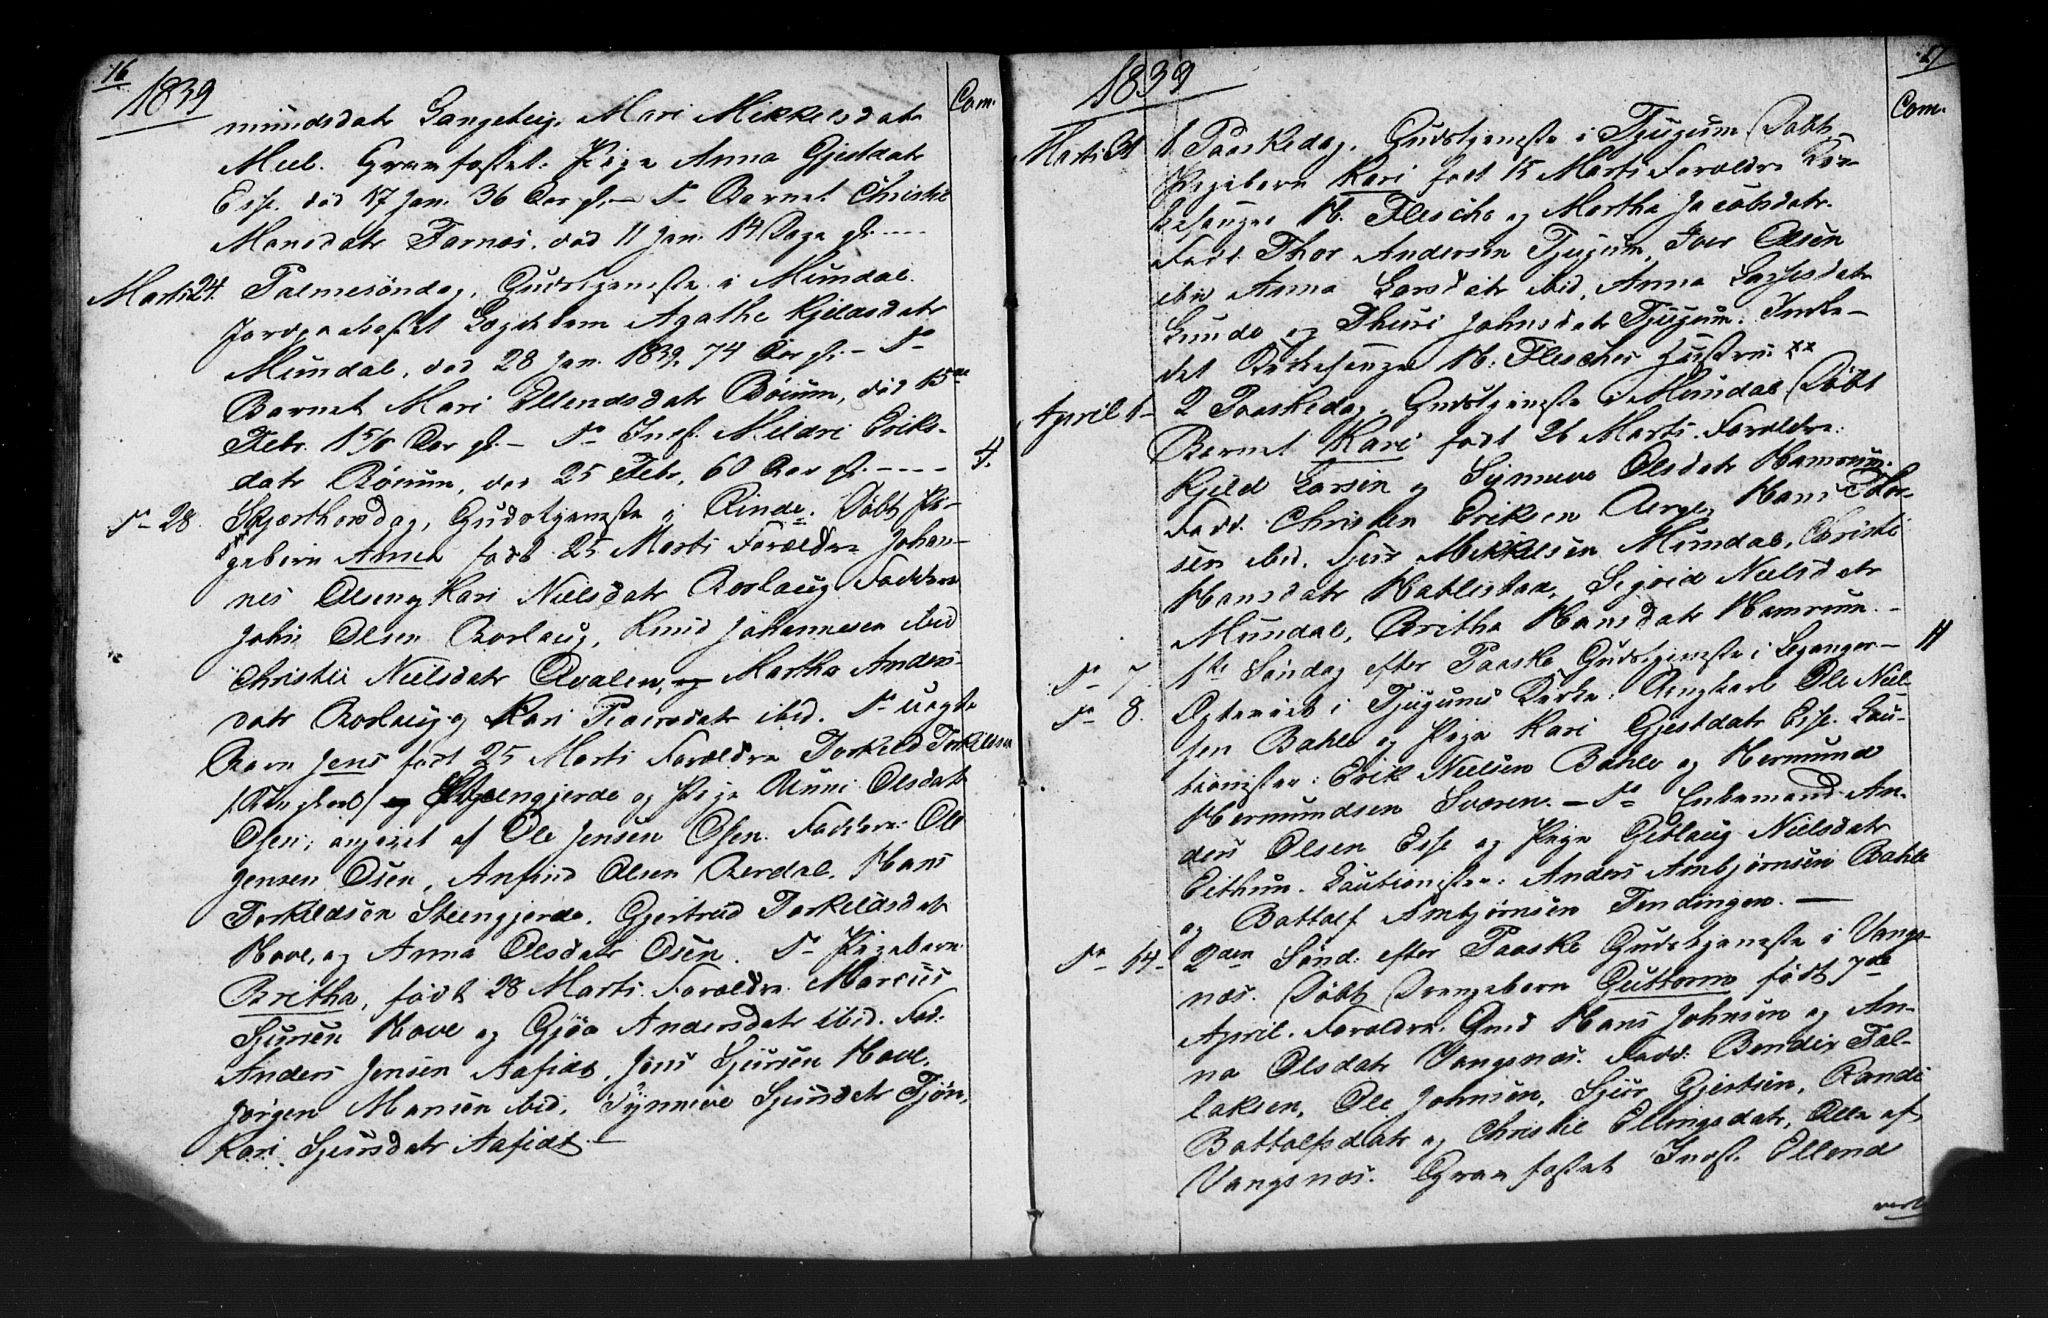 16
1839
Com.
mundsdatr Langeteig, Mari Mikkelsdatr
Meel. Gravfæstet: Pige Anna Gjestdatr
Esse. død 17 Jan. 36 Aar gl. – do Barnet Christie
Monsdatr Farnæs, død 11 Jan. 14 Dage gl. ----
Marti 24. Palmesöndag, Gudstjeneste i Mundal.
Jordpaakastet Lægdslem Agathe Kjeldsdatr
Mundal, död 28 Jan. 1839, 74 Aar gl. – do
Barnet Mari Ellendsdatr Böium, död 15de
Febr. 1 5/6 Aar gl. – do Inds. Mildri Eriks-
datr Böium, död 25 Febr, 60 Aar gl. ---- 4.
do 28. Skjærthorsdag, Gudstjeneste i Rinde. Döbt Pi-
gebarn Anna född 25 Marti Forældre Johan-
nes Olsen og Kari Nielsdatr Borlaug Faddere
John Olsen Borlaug, Knud Johannesen ibid
Christie Nielsdatr Qvalen, Martha Anders-
datr Borlaug og Kari Pedersdatr ibid. do uægte
Barn Jens födt 25 Marti Forældre Torkild Torkildsen
/Ungkarl/ Steengjerde og Pige Unni Olsdatr
Osen, angivet af Ole Jensen Osen. Faddere: Ole
Jensen Osen, Anfind Olsen Berdal, Hans
Torkildsen Steengjerde, Gjertrud Torkildsdatr
Hove, og Anna Olsdatr Osen. do Pigebarn
Britha, födt 28 Marti. Forældre Marcus
Sjursen Hove og Gjöa Andersdatr ibid. Fad:
Anders Jensen Aafedt, Jens Sjursen Hove,
Jörgen Monsen ibid, Synneve Sjursdatr Tjön,
Kari Sjursdatr Aafedt –
17
1839
Com.
Marti 31 1 Paaskedag. Gudstjeneste i Tjugum Döbt
Pigebarn Kari födt 15 Marti Forældre Kir-
kesanger H. Flescher og Martha Jacobsdatr.
Fadd. Thor Andersen Tjugum, Iver Olsen
ibid Anna Larsdatr ibid, Anna Lassesdatr
Lunde og Thuri Johnsdatr Tjugum. Indle-
det Kirkesanger H. Fleschers Hustru xx
April 1– 2 Paaskedag. Gudstjeneste i Mundal Döbt
Barnet Kari födt 26 Marti. Forældre:
Kjeld Larsen og Synneve Olsdatr Hamrum.
Fadd. Christen Eriksen Berge, Hans Peder-
sen ibid. Sjur Mikkelsen Mundal, Christi
Hansdatr Hatlestad, Sigvid Nielsdatr
Mundal, Britha Hansdatr Hamrum. –
do 7. 1ste Söndag efter Paaske Gudstjeneste i Leganger – 11
do 8. Ægteviet i Tjugums Kirke: Ungkarl Ole Niel-
sen Bahle og Pige Kari Gjestdatr Esse. Cau-
tionister: Erik Nielsen Bahle og Hermund
Hermundsen Sværen. – do Enkemand An-
ders Olsen Esse og Pige Gjetlaug Nielsdatr
Eithun. Cautionister: Anders Ambjörnsen Bahle
og Bottolf Ambjörnsen Tendingen. –
do 14. 2den Sönd. efter Paaske Gudstjeneste i Vangs-
næs. Döbt Drengebarn Guttorm födt 7de
April. Forældre: Gmd Hans Johnsen og An-
na Olsdatr Vangsnæs. Fadd: Bendix Fal-
laksen, Ole Johnsen, Sjur Gjertsen, Randi
Bottolfsdatr og Christie Ellingsdatr, Alle af
Vangsnæs. Gravfæstet Inds. Ellend
vert